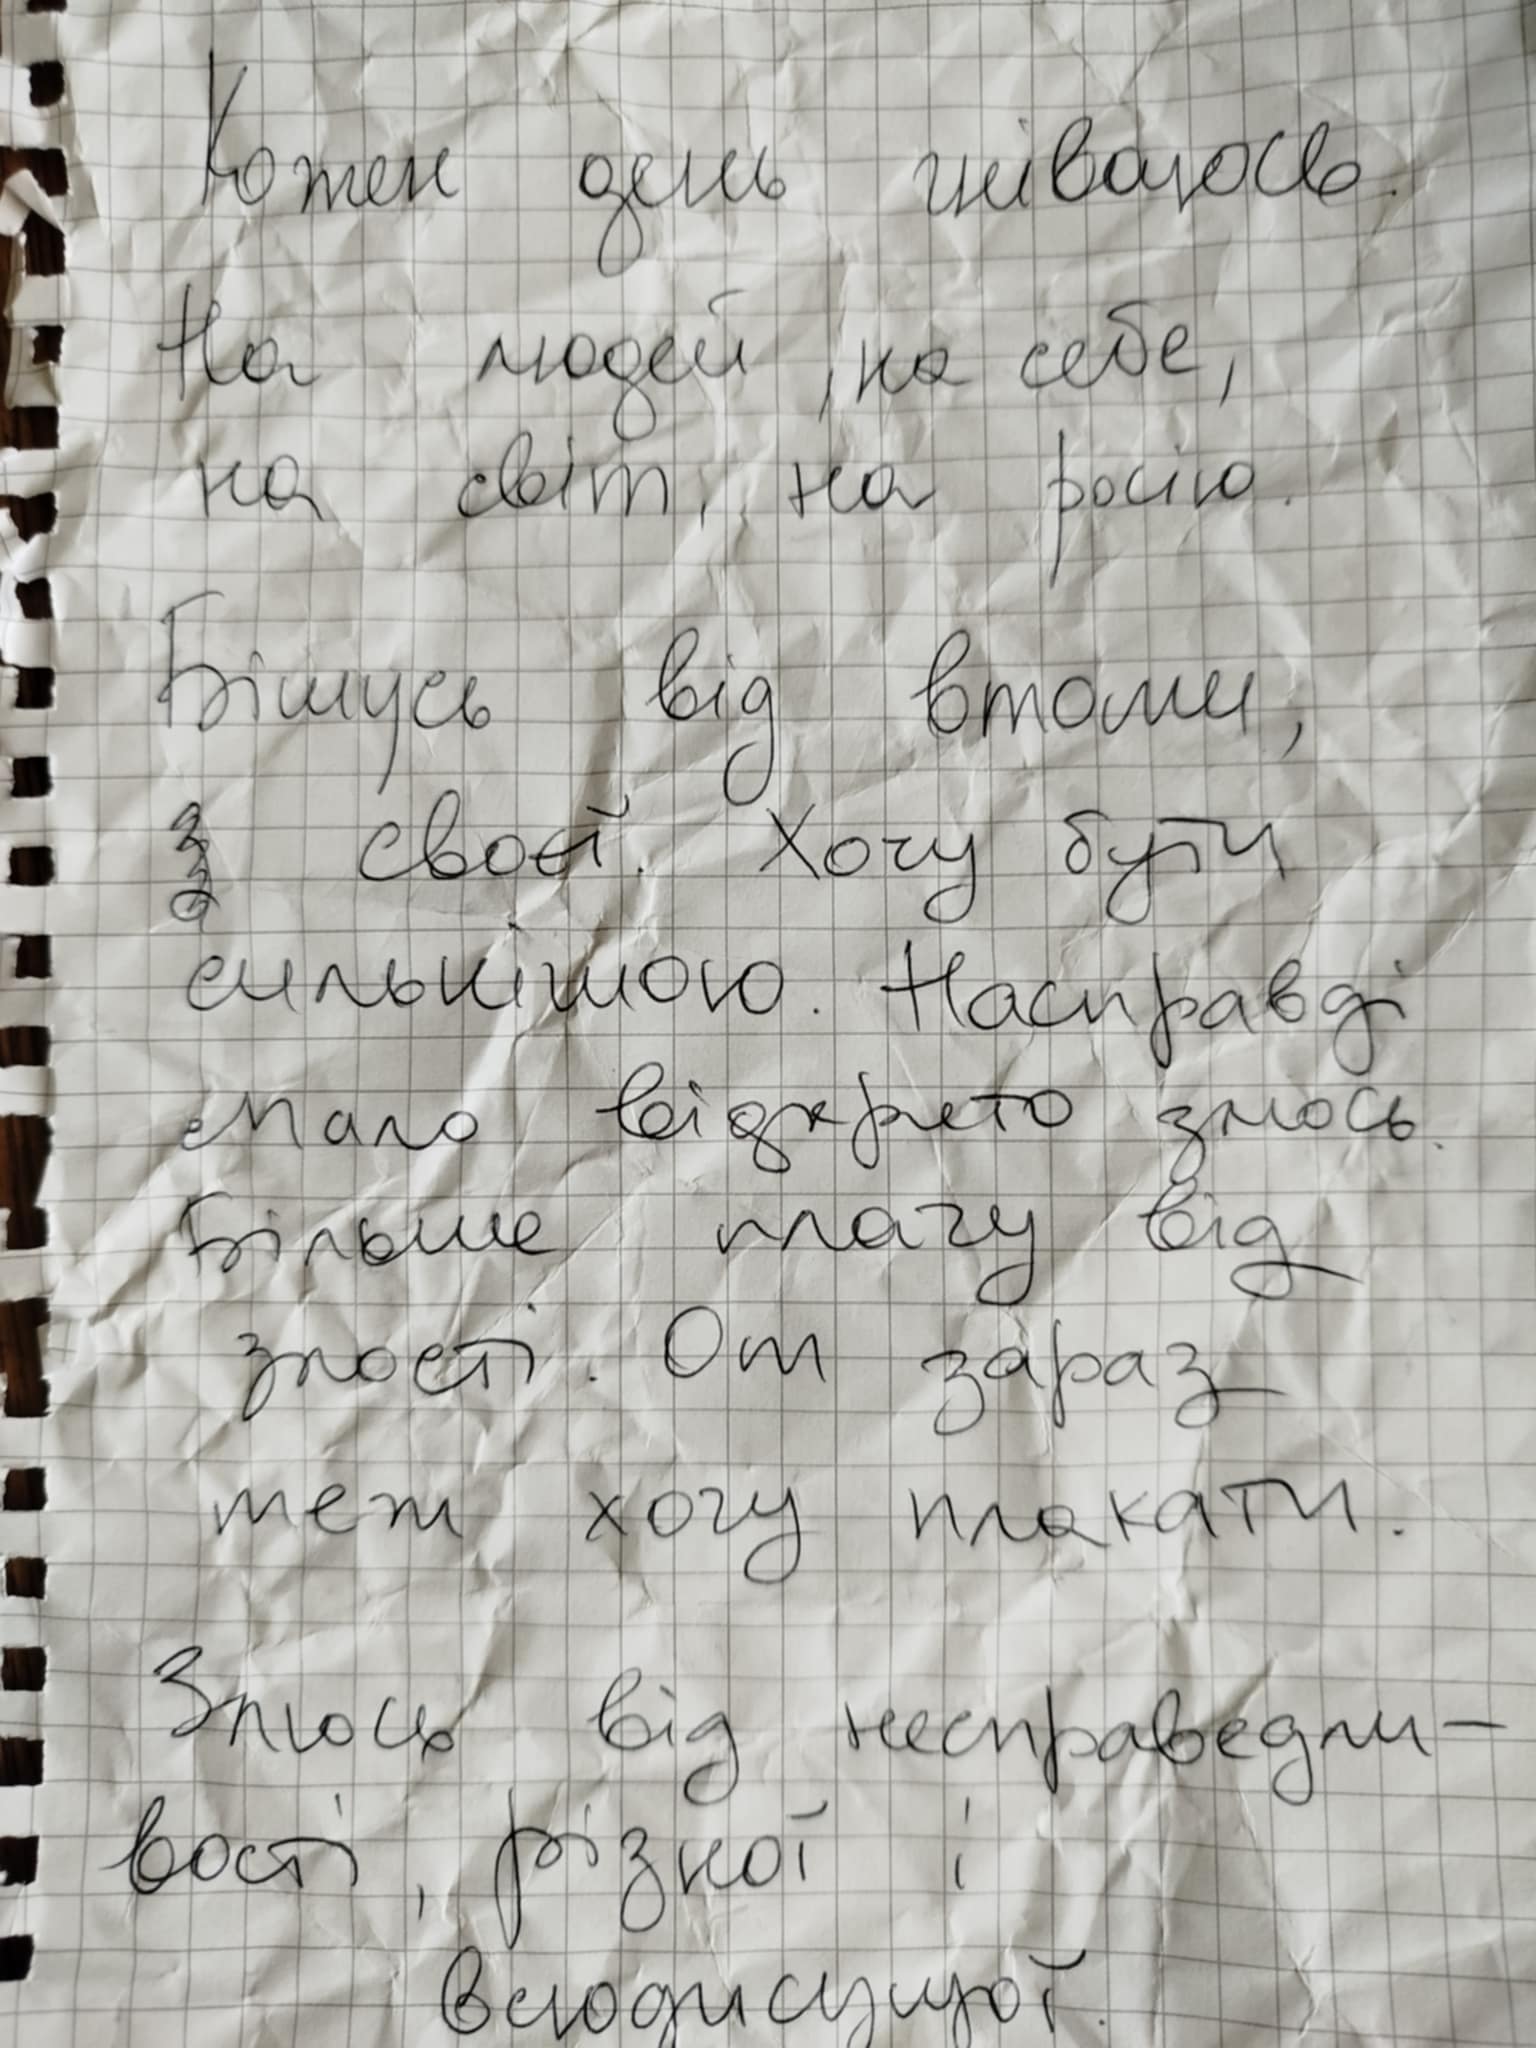 Кожен день гніваюсь.
На людей, на себе,
на світ, на росію.
Бішусь від втоми,
з своєї. Хочу бути
сильнішою. Насправді
мало відкрито злюсь.
Більше плачу від
злості. От зараз
теж хочу плакати.
Злюсь від несправедли-
вості, різної і
всюдисущої.